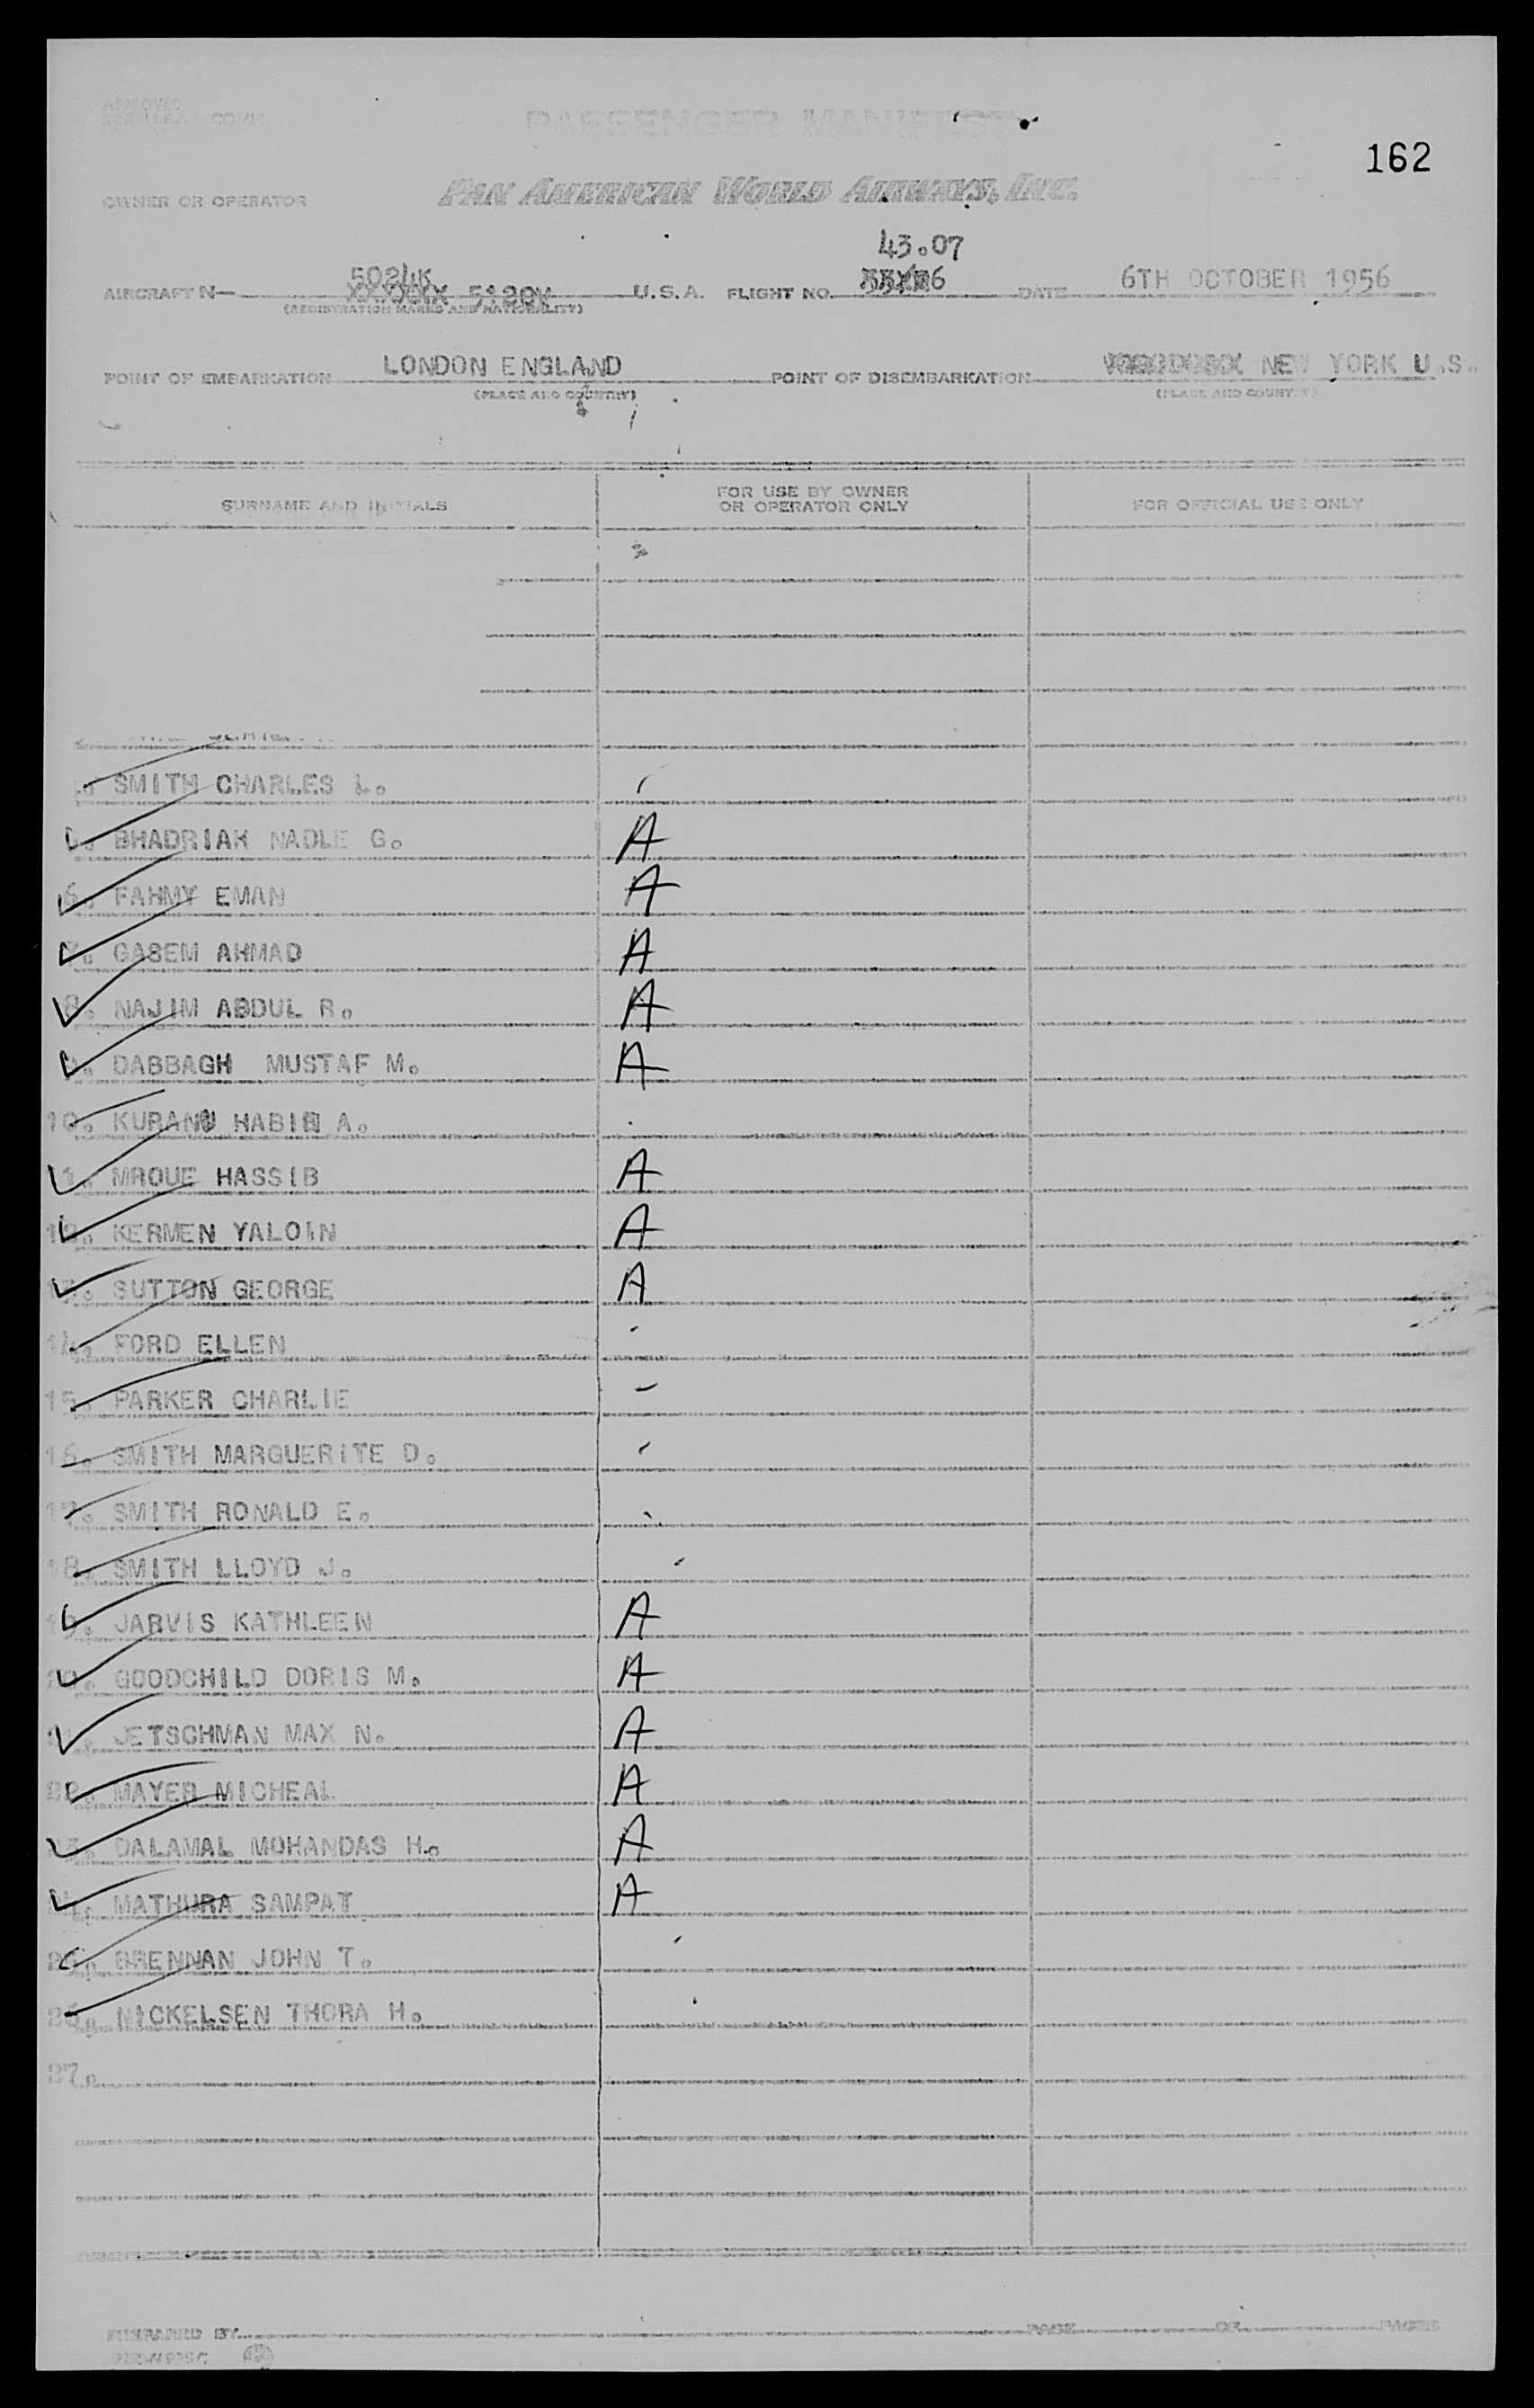 APPROVED
PASSENGER MANIFEST
162
OWNER OR OPERATOR PAN AMERICAN WORLD AIRWAYS, INC.
43.07
5024K
AIRCRAFT N— XXXXXX 5120V U.S.A. FLIGHT NO. DATE 6TH OCTOBER 1956
(REGISTRATION MARKS AND NATIONALITY)
POINT OF EMBARKATION LONDON ENGLAND POINT OF DISEMBARKATION NEW YORK U.S.
(PLACE AND COUNTRY) (PLACE AND COUNTRY)
SURNAME AND INITIALS FOR USE BY OWNER OR OPERATOR ONLY FOR OFFICIAL USE ONLY
SMITH CHARLES L.
BHADRIAK NADLE G. A
6. FAHMY EMAN A
7. GASEM AHMAD A
8. NAJIM ABDUL R. A
9. DABBAGH MUSTAF M. A
10. HABIB A.
11. MROUE HASSIB A
12. KERMEN YALOIN A
13. SUTTON GEORGE A
14. FORD ELLEN
15. PARKER CHARLIE
16. SMITH MARGUERITE D.
17. SMITH RONALD E.
18. SMITH LLOYD J.
19. JARVIS KATHLEEN A
20. GOODCHILD DORIS M. A
21. JETSCHMAN MAX N. A
22. MAYER MICHEAL A
23. DALAMAL MOHANDAS H. A
24. MATHURA SAMPAT A
25. BRENNAN JOHN T.
26. NICKELSEN THORA H.
27.
PREPARED BY PAGE OF PAGES